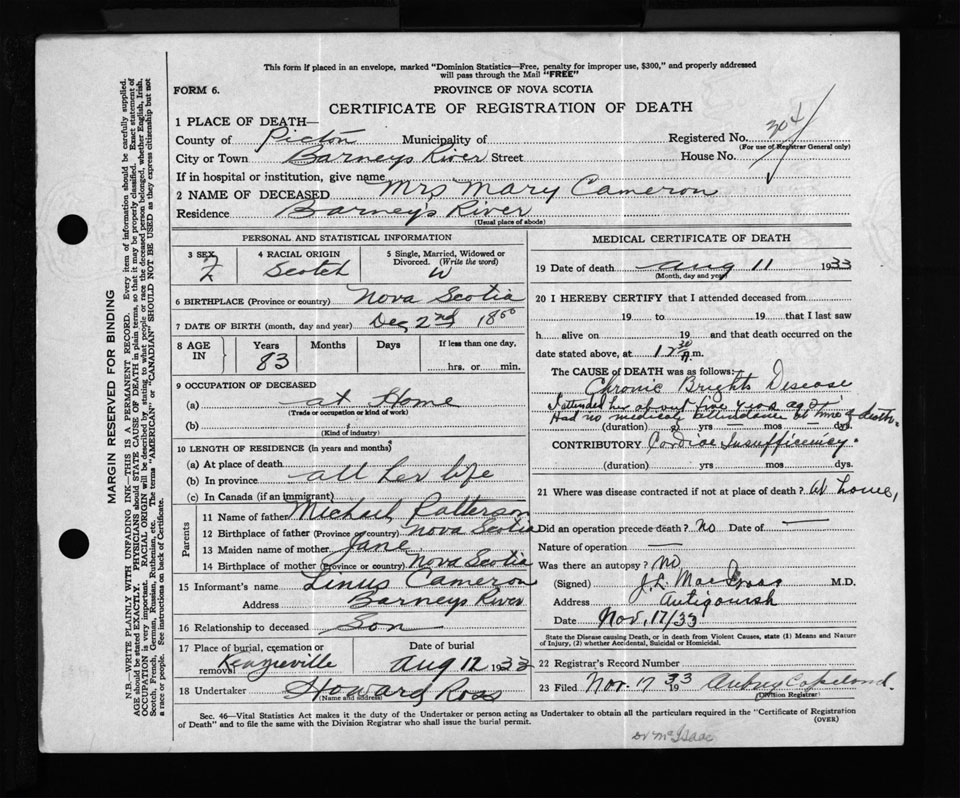 This form if placed in an envelope, marked "Dominion Statistics—Free, penalty for improper use, $300," and properly addressed
will pass through the Mail "FREE"
FORM 6.
PROVINCE OF NOVA SCOTIA
CERTIFICATE OF REGISTRATION OF DEATH
1 PLACE OF DEATH—
County of Pictou Municipality of Registered No. 304
(For use of Registrar General only)
City or Town Barneys River Street House No.
If in hospital or institution, give name
2 NAME OF DECEASED Mrs Mary Cameron
Residence Barney's River
(Usual place of abode)
PERSONAL AND STATISTICAL INFORMATION
3 SEX F
4 RACIAL ORIGIN Scotch
5 Single, Married, Widowed or Divorced. (Write the word) W
6 BIRTHPLACE (Province or country) Nova Scotia
7 DATE OF BIRTH (month, day and year) Dec 2nd 18
8 AGE IN Years 83 Months Days If less than one day, hrs. or min.
9 OCCUPATION OF DECEASED
(a) at Home
(Trade or occupation or kind of work)
(b)
(Kind of industry)
10 LENGTH OF RESIDENCE (in years and months)
(a) At place of death
(b) In province all her life
(c) In Canada (if an immigrant)
Parents
11 Name of father Michael Patterson
12 Birthplace of father (Province or country) Nova Scotia
13 Maiden name of mother Jane
14 Birthplace of mother (Province or country) Nova Scotia
15 Informant's name Linus Cameron
Address Barneys River
16 Relationship to deceased Son
17 Place of burial, cremation or removal Kenzieville Date of burial Aug 12 1933
18 Undertaker Howard Ross
(Name and address)
MEDICAL CERTIFICATE OF DEATH
19 Date of death Aug 11 1933
(Month, day and year)
20 I HEREBY CERTIFY that I attended deceased from
19 to 19 that I last saw
h alive on 19 and that death occurred on
date stated above, at 12 30 A.m.
The CAUSE OF DEATH was as follows:
Chronic Brights Disease
I attended her about five years ago or
Had no medical attendance at time of death.
(duration) yrs — mos — dys.
CONTRIBUTORY Cardiac Insufficiency.
(duration) yrs mos dys.
21 Where was disease contracted if not at place of death? at home,
Did an operation precede death? No Date of —
Nature of operation —
Was there an autopsy? No
(Signed) J.L. MacIsaac M.D.
Address Antigonish
Date Nov. 12/33
State the Disease causing Death, or in death from Violent Causes, state (1) Means and Nature
of Injury, (2) whether Accidental, Suicidal or Homicidal.
22 Registrar's Record Number
23 Filed Nov. 17 1933 Aubrey Copeland.
(Division Registrar)
Sec. 46—Vital Statistics Act makes it the duty of the Undertaker or person acting as Undertaker to obtain all the particulars required in the "Certificate of Registration
of Death" and to file the same with the Division Registrar who shall issue the burial permit.
(OVER)
Dr McIsaac
MARGIN RESERVED FOR BINDING
N.B.—WRITE PLAINLY WITH UNFADING INK—THIS IS A PERMANENT RECORD. Every item of information should be carefully supplied.
AGE should be stated EXACTLY. PHYSICIANS should STATE CAUSE OF DEATH in plain terms, so that it may be properly classified. Exact statement of
OCCUPATION is very important. RACIAL ORIGIN will be described by stating to what people or race the deceased person belonged, whether English, Irish,
Scotch, French, German, Russian, Ruthenian, etc. The terms "AMERICAN" or "CANADIAN" SHOULD NOT BE USED as they express citizenship but not
a race or people. See instructions on back of Certificate.